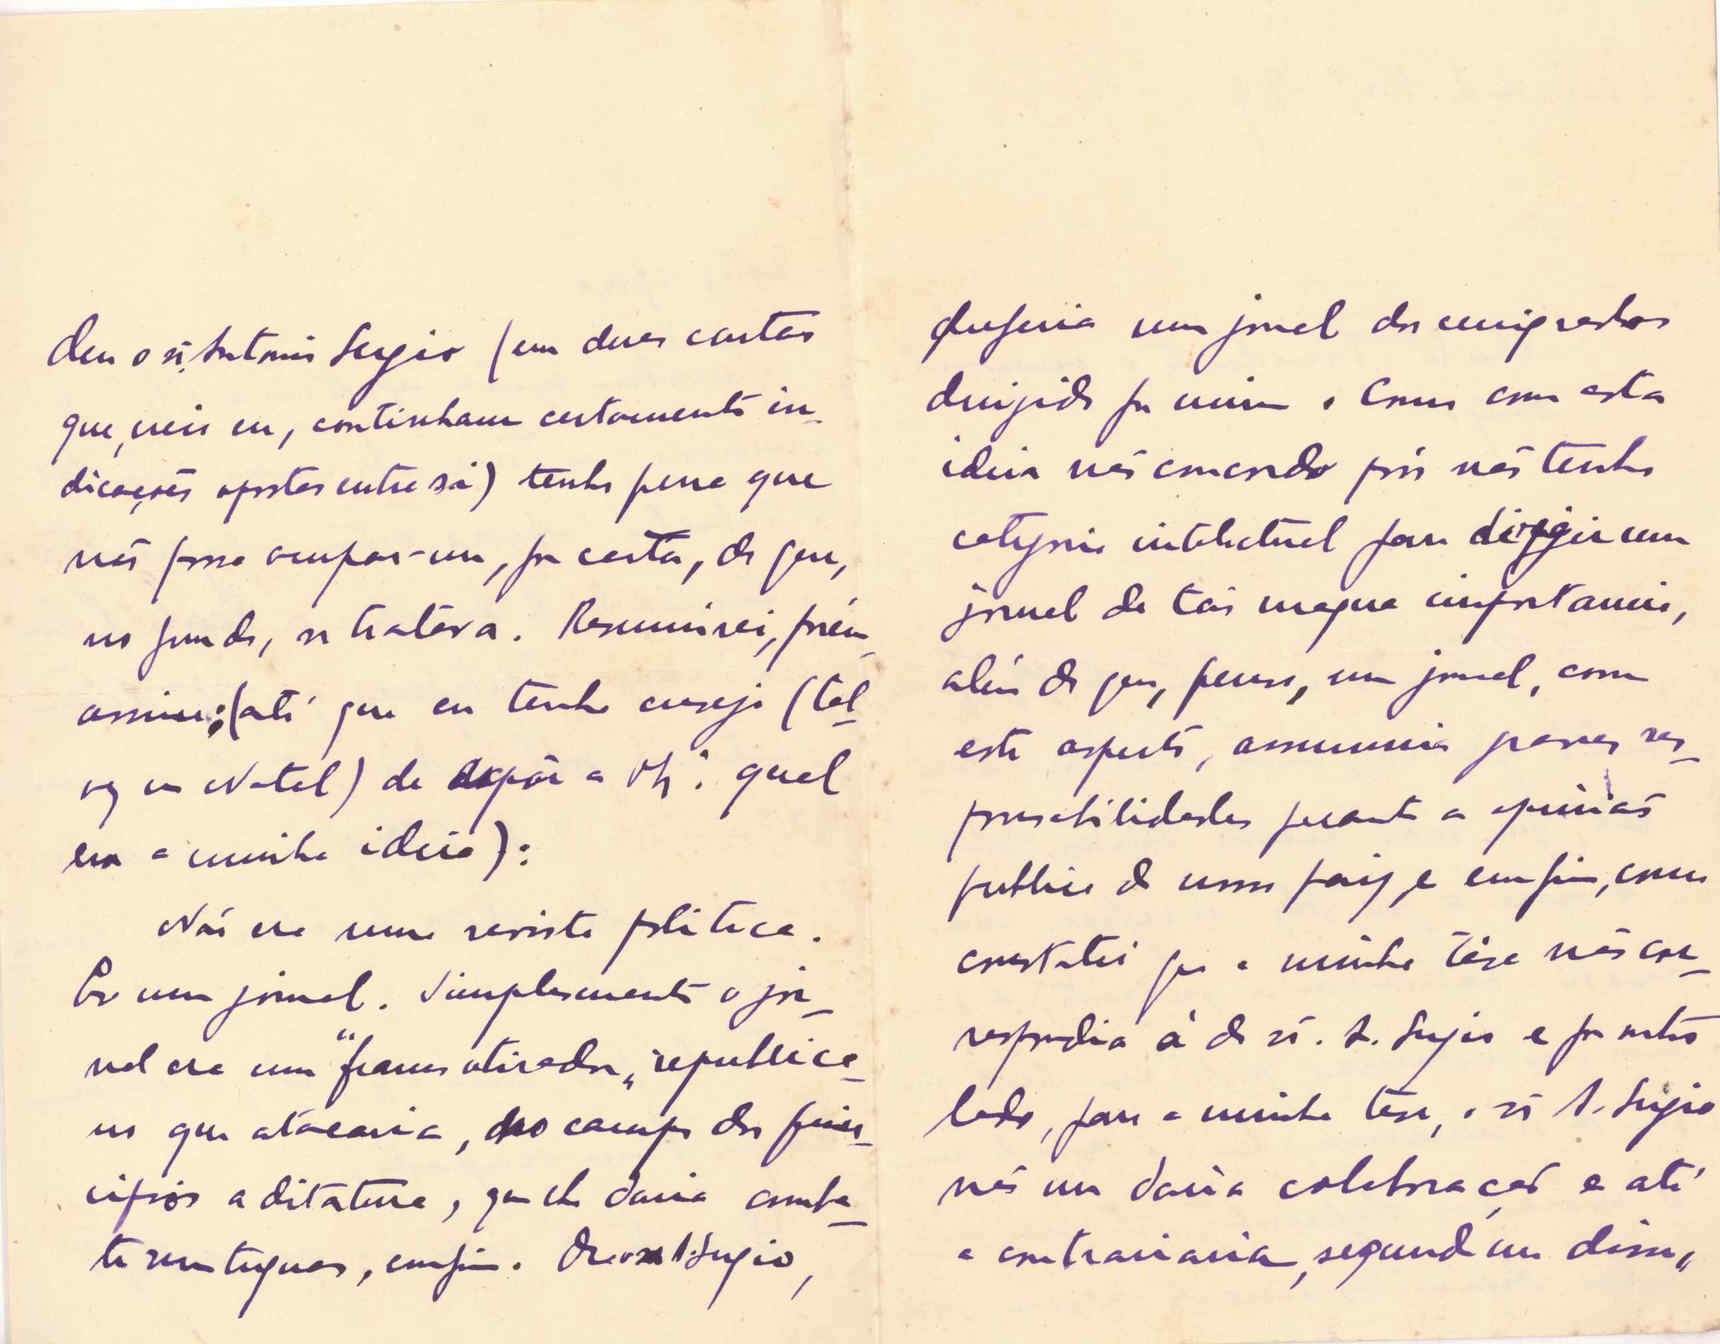 deu o sr. Antonio Sergio (em duas cartas
que, creio eu, continham certamente in-
dicações opostas entre si) tenho pena que
não possa ocupar-me, por carta, do que,
no fundo, se tratava. Resumirei, porém
assim: (até que eu tenho ensejo (tal-
vez em Natal) de expôr a V. qual
era a minha ideia):
Não era uma revista politica.
Era um jornal. Simplesmente o jor-
nal era um "franco atirador" republica-
no que atacaria, no campo dos prin-
cipios a ditadura, que lhe daria comba-
te sem treguas, emfim. Ora o sr. A. Sergio,
preferia um jornal dos emigrados
dirigido por mim. Como com esta
ideia não concordo pois não tenho
categoria intelectual para dirigir um
jornal de tão magna importancia,
além do que, penso, um jornal, com
este aspecto, assumiria graves res-
ponsabilidades perante a opinião
publica do nosso paiz, e emfim, como
constatei que a minha tése não cor-
respondia á do sr. A. Sergio e por outro
lado, para a minha tese, o sr A. Sergio
não me daria colaboração e até
a contrariaria, segundo me disse,